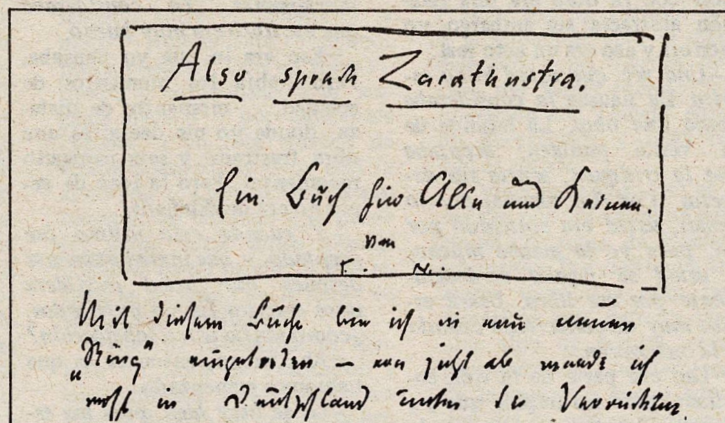 Also sprach Zarathustra.
Ein Buch für Alle und Keinen.
von
F. N.
Mit diesem Buche bin ich in einen neuen
„Ring" eingetreten — von jetzt ab werde ich
wohl in Deutschland unter die Verrückten